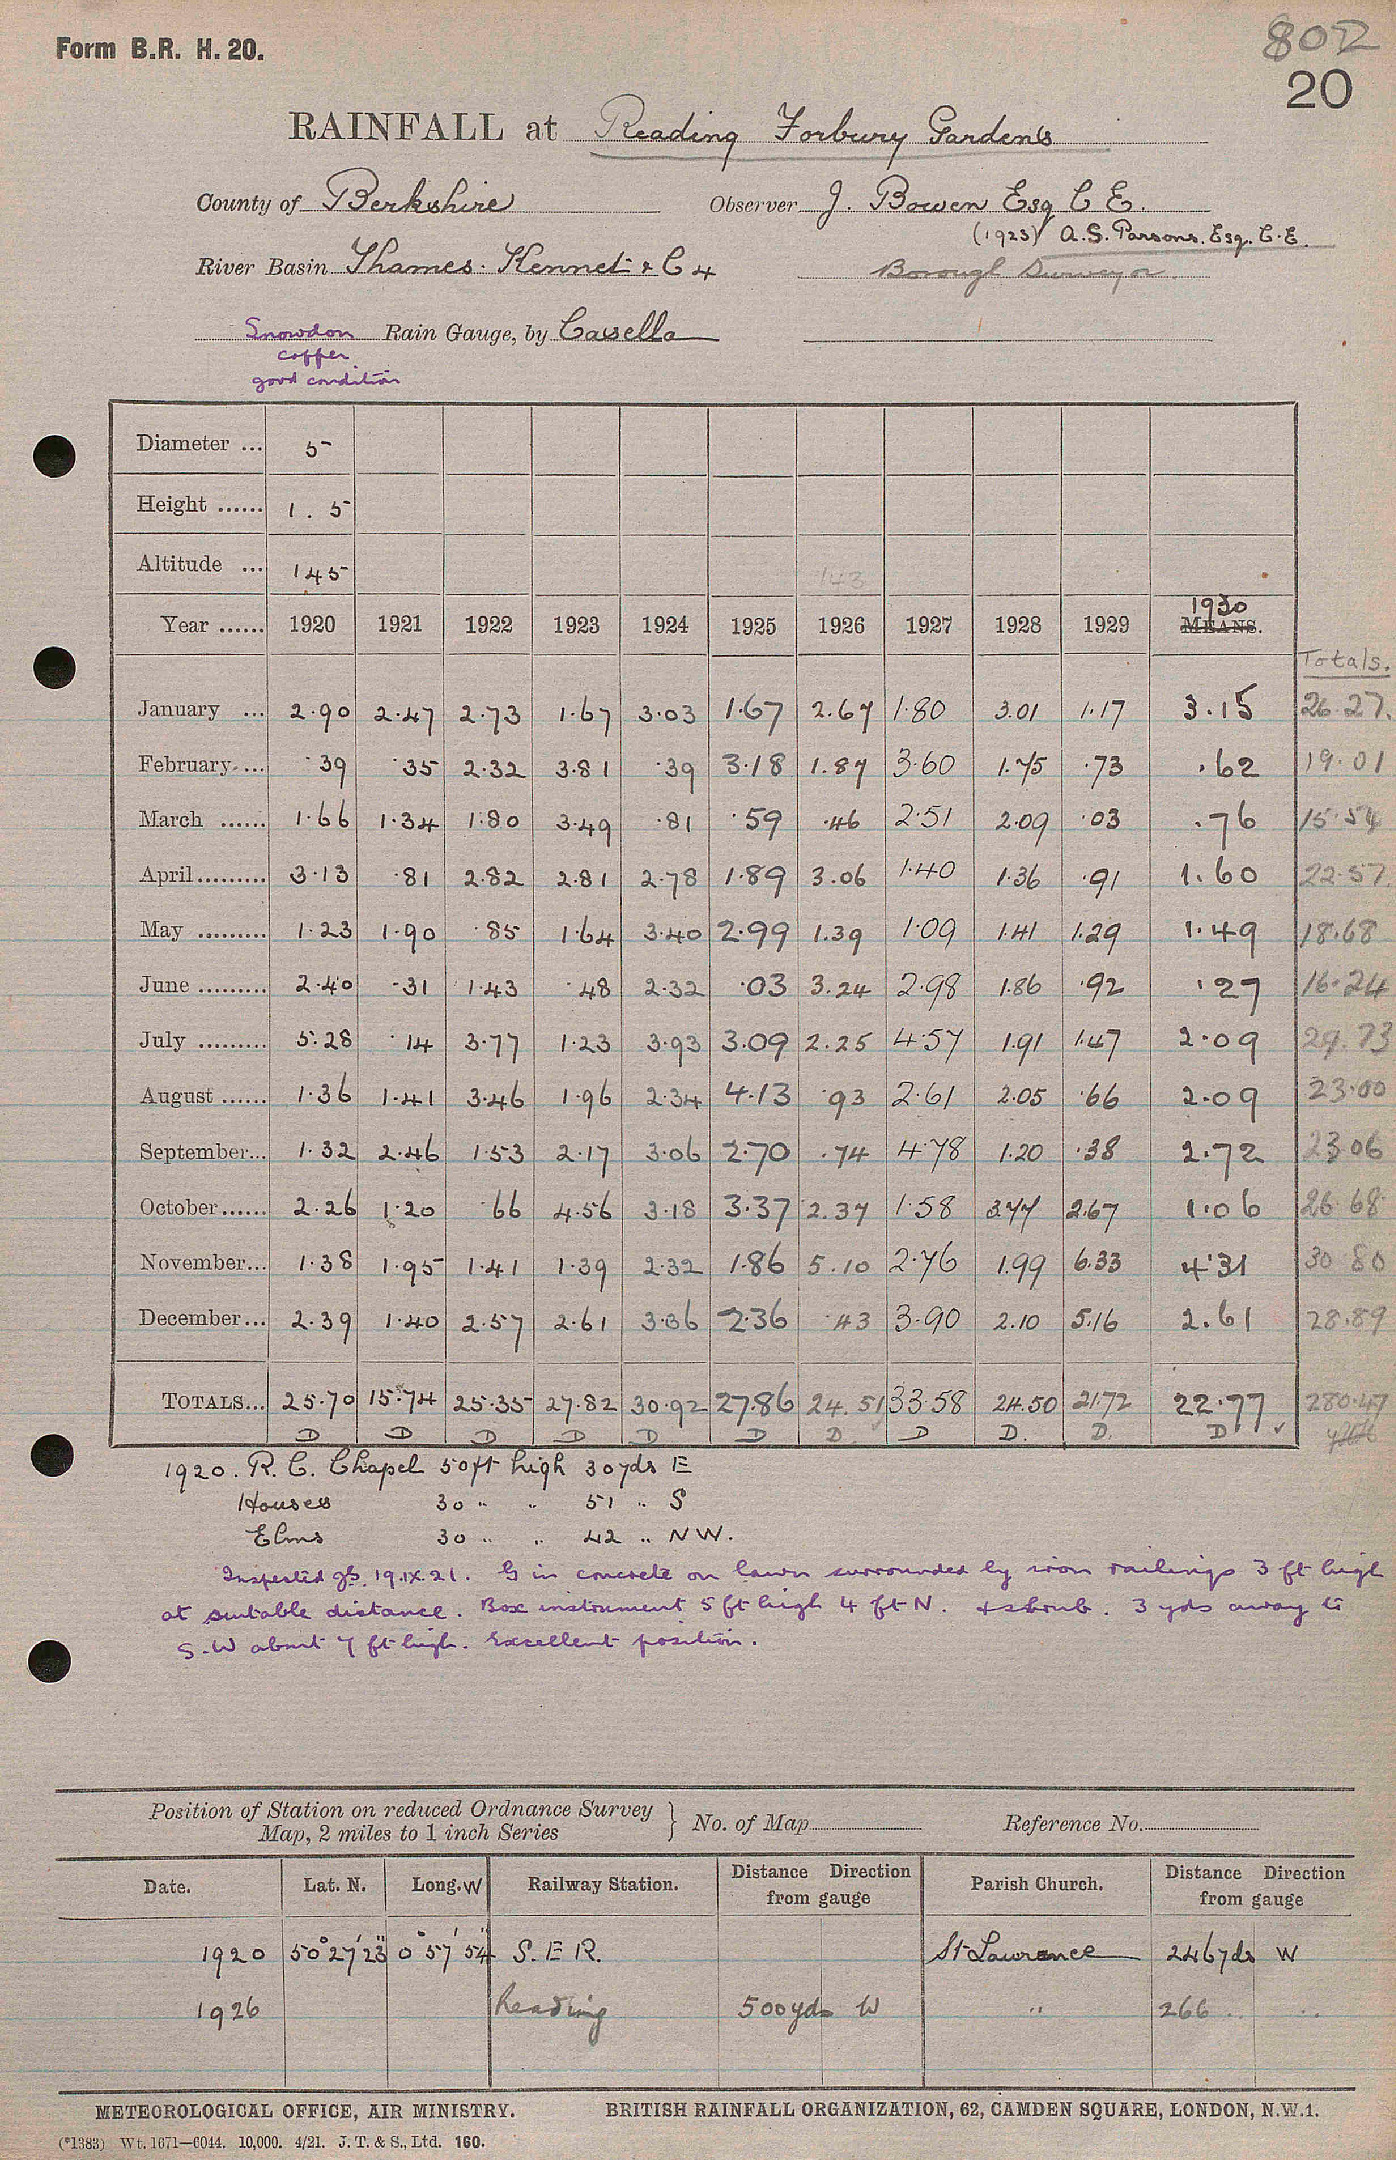 Form B.R. H. 20.
802
20
RAINFALL at Reading Forbury Gardens
County of Berkshire Observer J. Bowen Esq C E.
(1923) A.S. Parsons. Esq. C.E.
River Basin Thames. Kennet & C 4 Borough Surveyor
Snowdon Rain Gauge, by Casella
copper
good condition
Diameter ... 5
Height ...... 1 . 5
Altitude ... 145 143
1930
Year ...... 1920 1921 1922 1923 1924 1925 1926 1927 1928 1929 MEANS.
Totals.
January ... 2.90 2.47 2.73 1.67 3.03 1.67 2.67 1.80 3.01 1.17 3.15 26.27.
February ... .39 .35 2.32 3.81 .39 3.18 1.87 3.60 1.75 .73 .62 19.01
March ...... 1.66 1.34 1.80 3.49 .81 .59 .46 2.51 2.09 .03 .76 15.54
April ......... 3.13 .81 2.82 2.81 2.78 1.89 3.06 1.40 1.36 .91 1.60 22.57
May ......... 1.23 1.90 .85 1.64 3.40 2.99 1.39 1.09 1.41 1.29 1.49 18.68
June ......... 2.40 .31 1.43 .48 2.32 .03 3.24 2.98 1.86 .92 .27 16.24
July ......... 5.28 .14 3.77 1.23 3.93 3.09 2.25 4.57 1.91 1.47 2.09 29.73
August ...... 1.36 1.41 3.46 1.96 2.34 4.13 .93 2.61 2.05 .66 2.09 23.00
September... 1.32 2.46 1.53 2.17 3.06 2.70 .74 4.78 1.20 .38 2.72 23.06
October...... 2.26 1.20 .66 4.56 3.18 3.37 2.37 1.58 3.77 2.67 1.06 26.68
November... 1.38 1.95 1.41 1.39 2.32 1.86 5.10 2.76 1.99 6.33 4.31 30.80
December... 2.39 1.40 2.57 2.61 3.36 2.36 .43 3.90 2.10 5.16 2.61 28.89
TOTALS... 25.70 15.74 25.35 27.82 30.92 27.86 24.51 33.58 24.50 21.72 22.77 280.47
D D D D D D D. D D. D. D ✓
1920. R. C. Chapel 50ft high 30yds E
Houses 30 " " 51 " S
Elms 30 " " 42 " N W.
Inspected 19.IX.21. G in concrete on lawn surrounded by iron railings 3 ft high
at suitable distance. Box instrument 5 ft high 4 ft N. & shrub. 3 yds away to
S.W about 7 ft high. Excellent position.
Position of Station on reduced Ordnance Survey
Map, 2 miles to 1 inch Series } No. of Map Reference No.
Date. Lat. N. Long. W Railway Station. Distance Direction from gauge Parish Church. Distance Direction from gauge
1920 50°27'23" 0°57'54" S. E R. St Lawrence 246yds W
1926 Reading 500yds W " 266 " "
METEOROLOGICAL OFFICE, AIR MINISTRY. BRITISH RAINFALL ORGANIZATION, 62, CAMDEN SQUARE, LONDON, N.W.1.
(*1383) Wt. 1671—6044. 10,000. 4/21. J. T. & S., Ltd. 160.